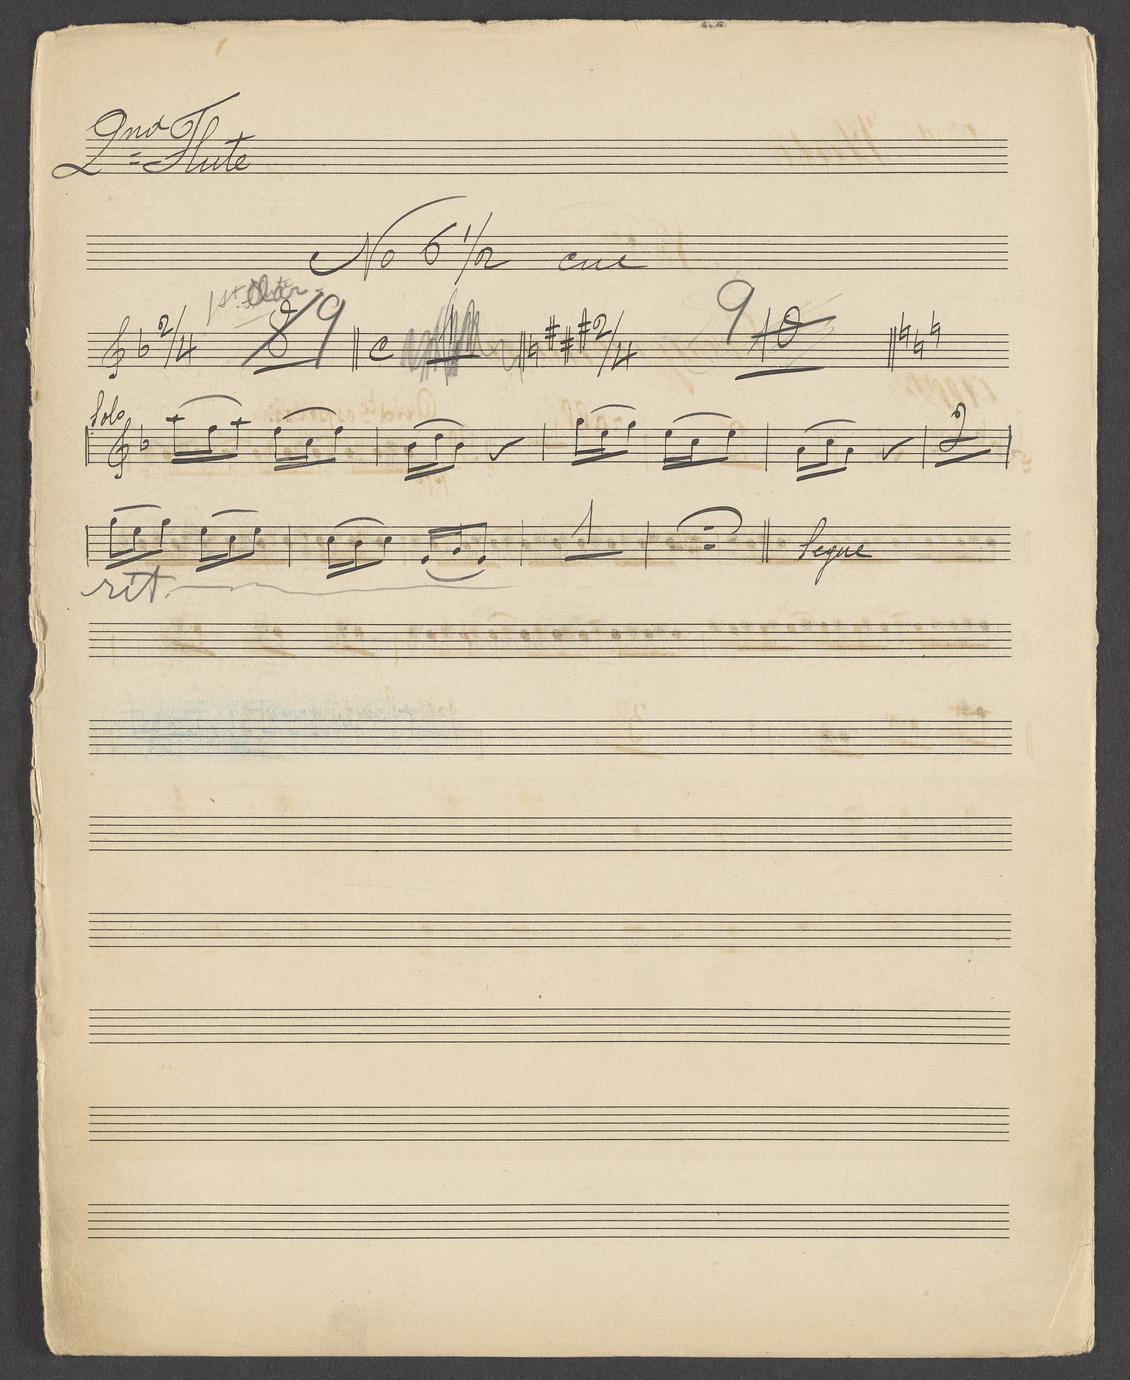 2nd Flute
No 6 1/2 cue
1st
2/4 8 9 C 2/4 9 10
Solo
2
1 Segue
rit